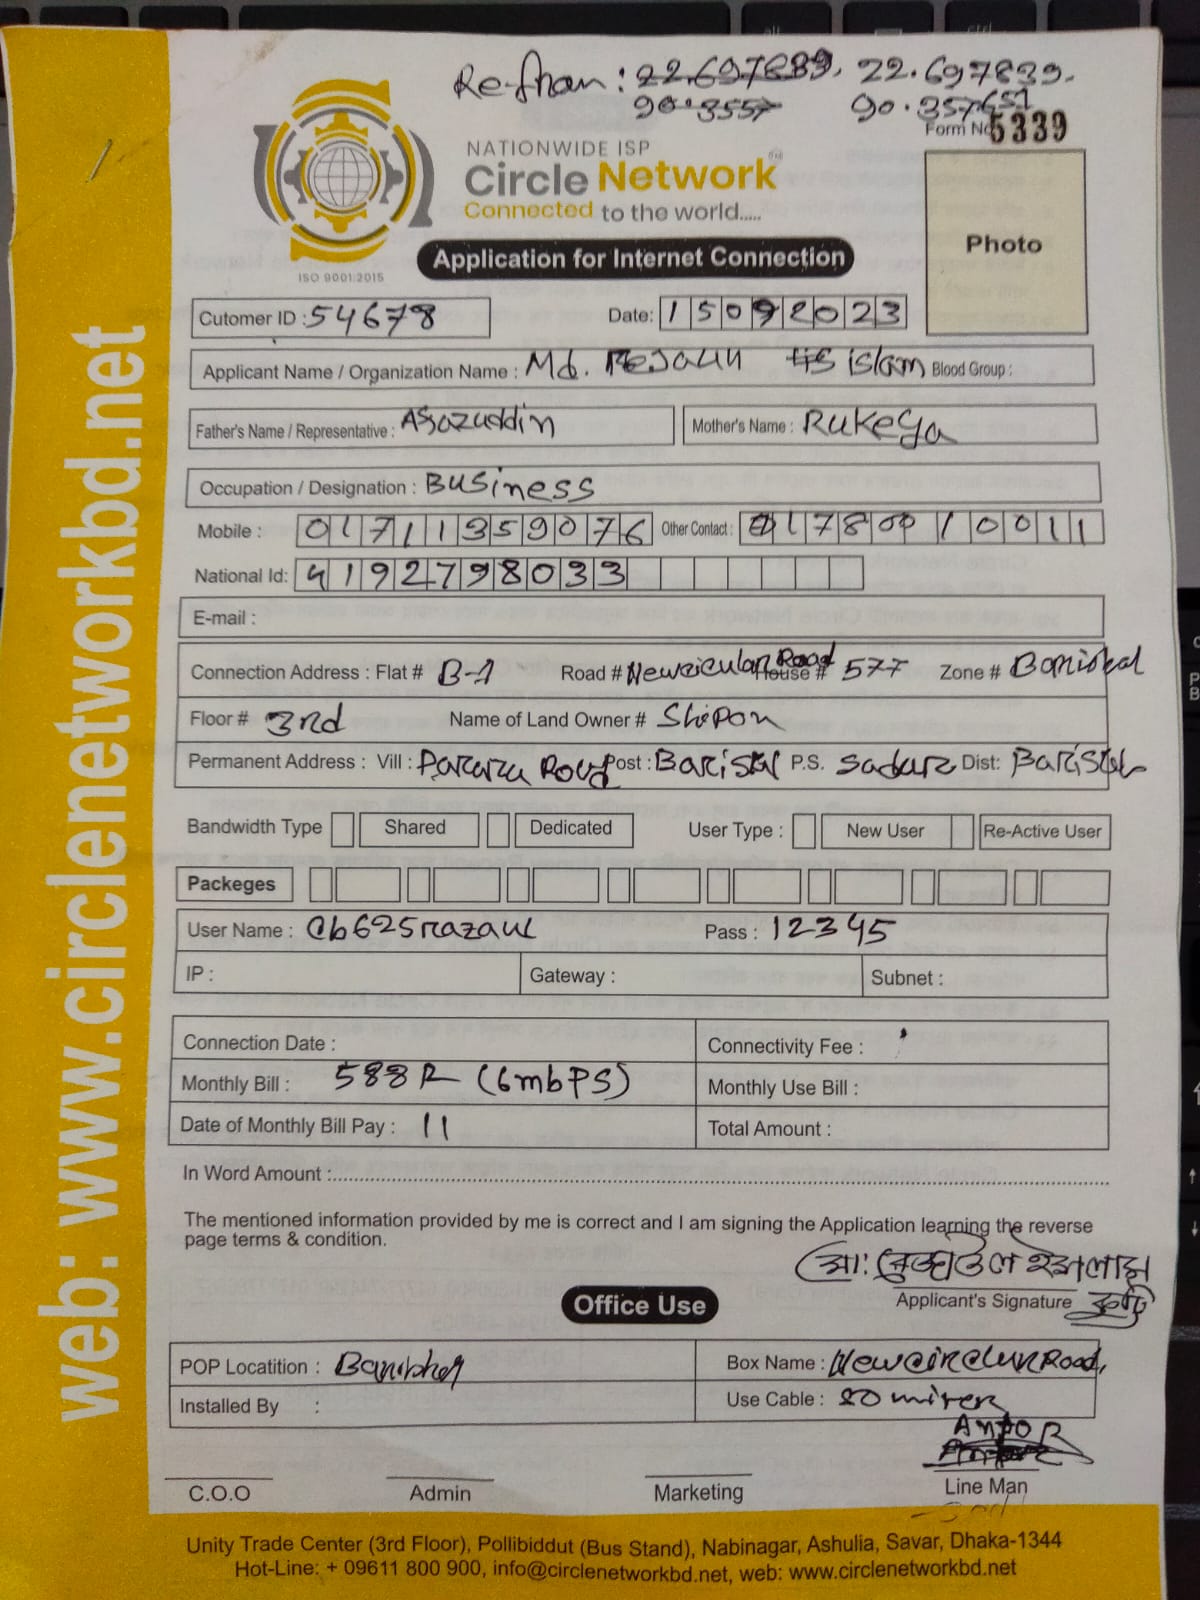 Re-fhan: 22.697889, 22.697839.
90.3557 90.357651
Form No 5339
NATIONWIDE ISP
Circle Network
Connected to the world.....
ISO 9001:2015
Application for Internet Connection
Photo
Cutomer ID : 54678 Date: 15092023
Applicant Name / Organization Name : Md. Rejaun islam Blood Group :
Father's Name / Representative : Asazuddin Mother's Name : Rukeya
Occupation / Designation : Business
Mobile : 01711359076 Other Contact : 01780010011
National Id: 4192798033
E-mail :
Connection Address : Flat # B-1 Road # Newcicular Road House # 577 Zone # Barishal
Floor # 3rd Name of Land Owner # Shipon
Permanent Address : Vill : Parara Road Post : Barisal P.S. Sadar Dist: Barisal
Bandwidth Type Shared Dedicated User Type : New User Re-Active User
Packeges
User Name : Cb625razaul Pass : 12345
IP : Gateway : Subnet :
Connection Date : Connectivity Fee :
Monthly Bill : 588 (6mbPS) Monthly Use Bill :
Date of Monthly Bill Pay : 11 Total Amount :
In Word Amount :
The mentioned information provided by me is correct and I am signing the Application learning the reverse
page terms & condition.
মো: রেজাউল ইসলাম
Applicant's Signature
Office Use
POP Locatition : Barishal Box Name : Newcirculur Road,
Installed By : Use Cable : 80 miter
C.O.O Admin Marketing Line Man
Unity Trade Center (3rd Floor), Pollibiddut (Bus Stand), Nabinagar, Ashulia, Savar, Dhaka-1344
Hot-Line: + 09611 800 900, info@circlenetworkbd.net, web: www.circlenetworkbd.net
web: www.circlenetworkbd.net